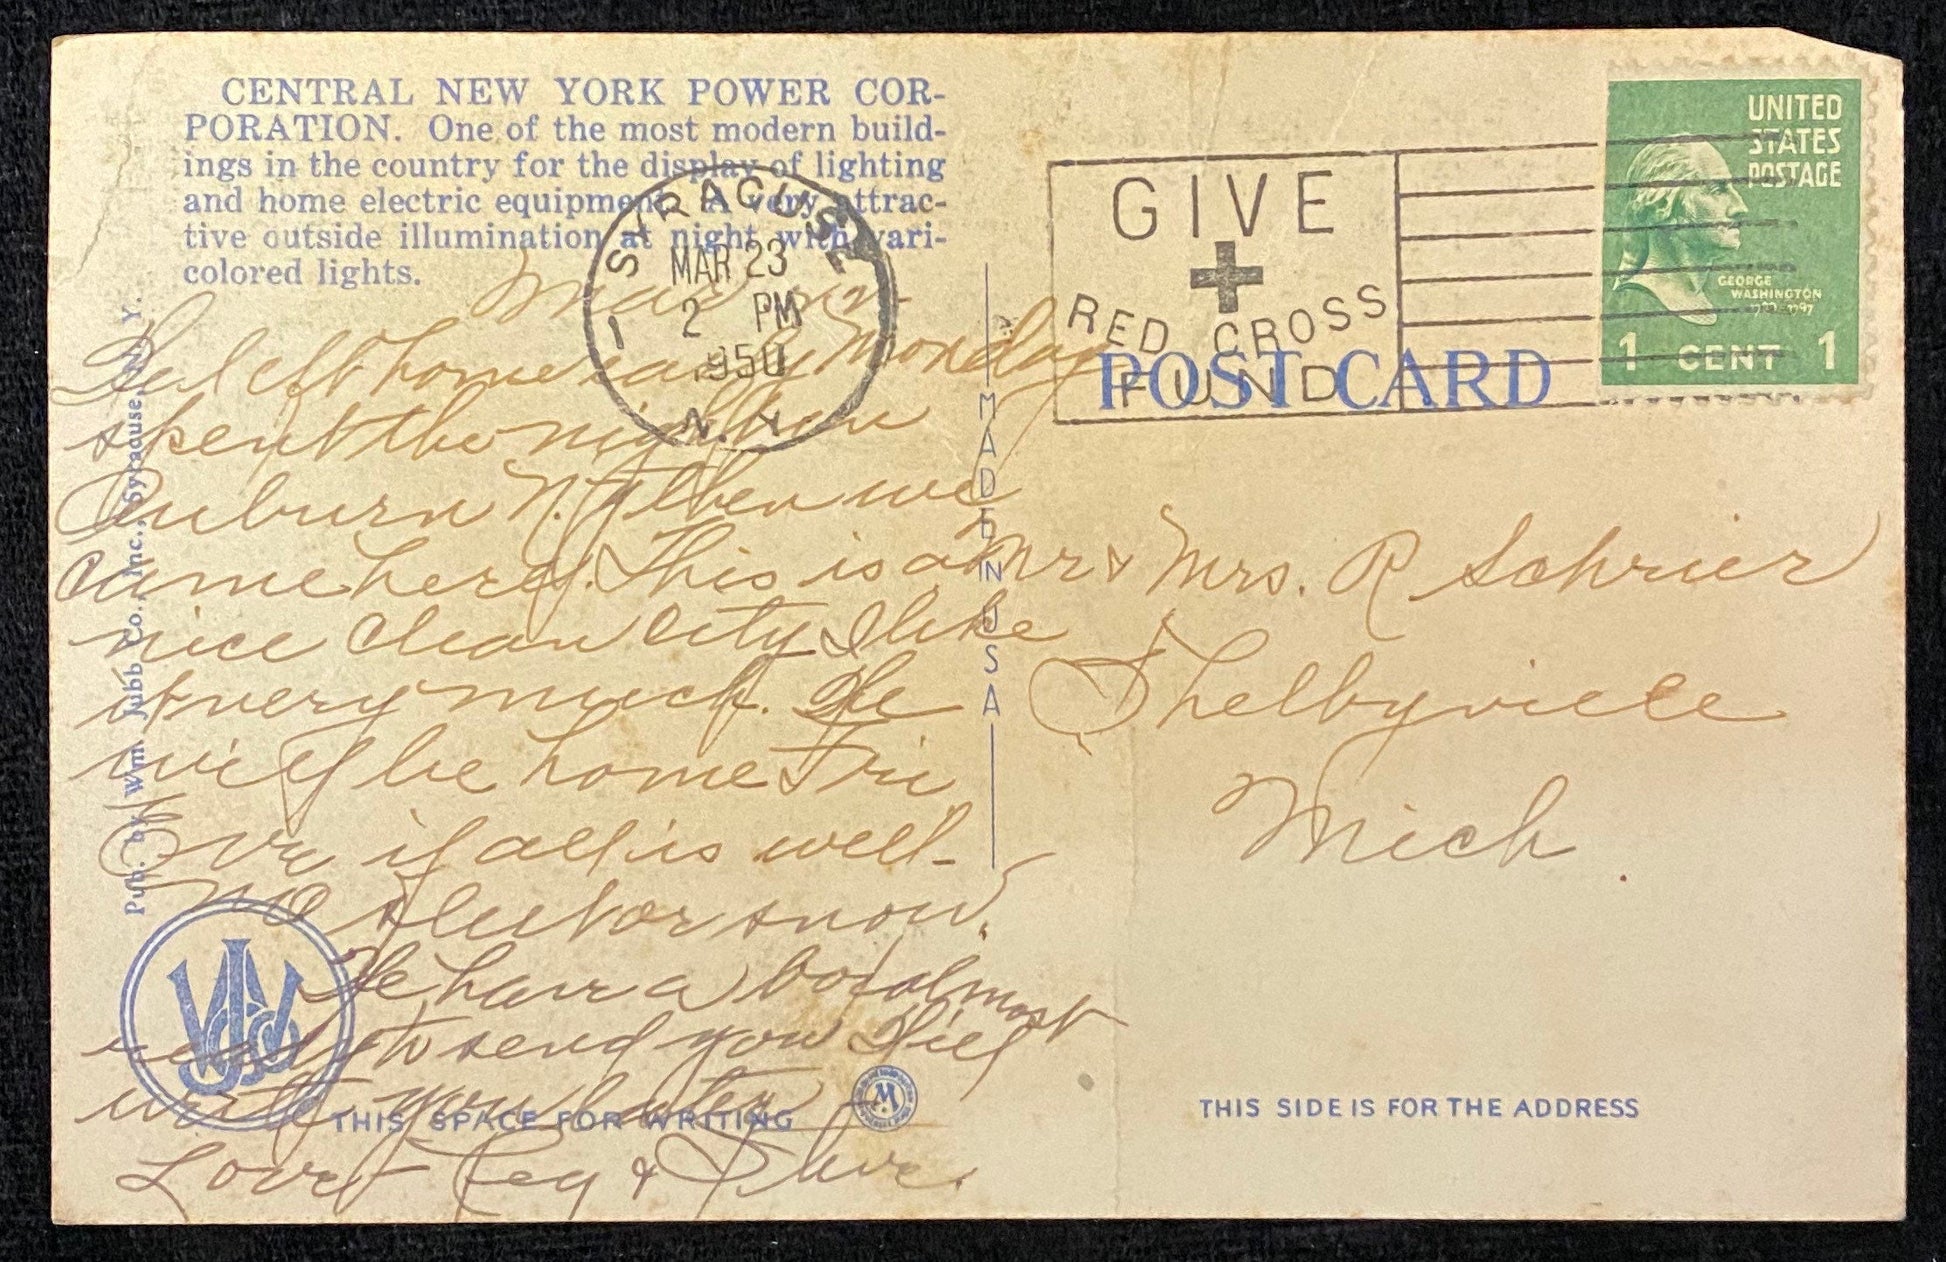 CENTRAL NEW YORK POWER COR-
PORATION. One of the most modern build-
ings in the country for the display of lighting
and home electric equipment. A very attrac-
tive outside illumination at night with vari-
colored lights.
SYRACUSE
MAR 23
2 PM
1950
N.Y.
1
GIVE
RED CROSS
FUND
UNITED
STATES
POSTAGE
GEORGE
WASHINGTON
1 CENT 1
POST CARD
MADE IN USA
Pub. by Wm. Jubb Co., Inc., Syracuse, N. Y.
left home early Monday
spent the night in
Auburn N.Y. then we
came here. This is a
nice clean city I like
it very much. We
will be home Fri
Eve if all is well-
No sleet or snow.
We have a book almost
ready to send you I'll
write you later
Love Reg &
Mr & Mrs. R Schrier
Shelbyville
Mich
THIS SPACE FOR WRITING
THIS SIDE IS FOR THE ADDRESS